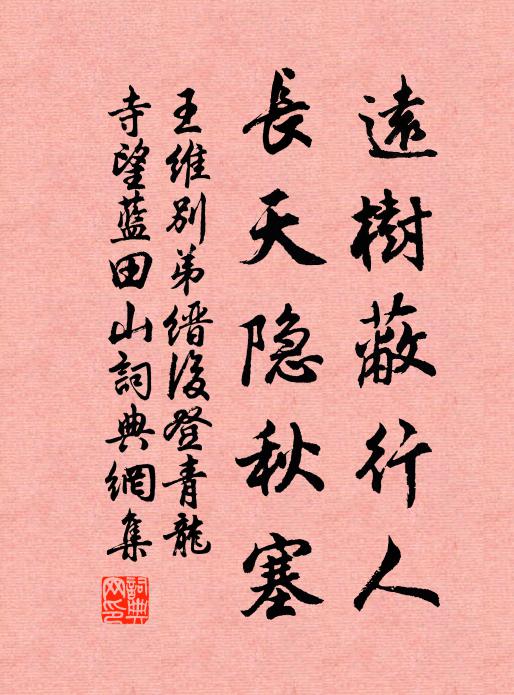 遠樹蔽行人
長天隐秋塞
王維别弟缙後登青龍
寺望藍田山詞典網集
詞典
网印